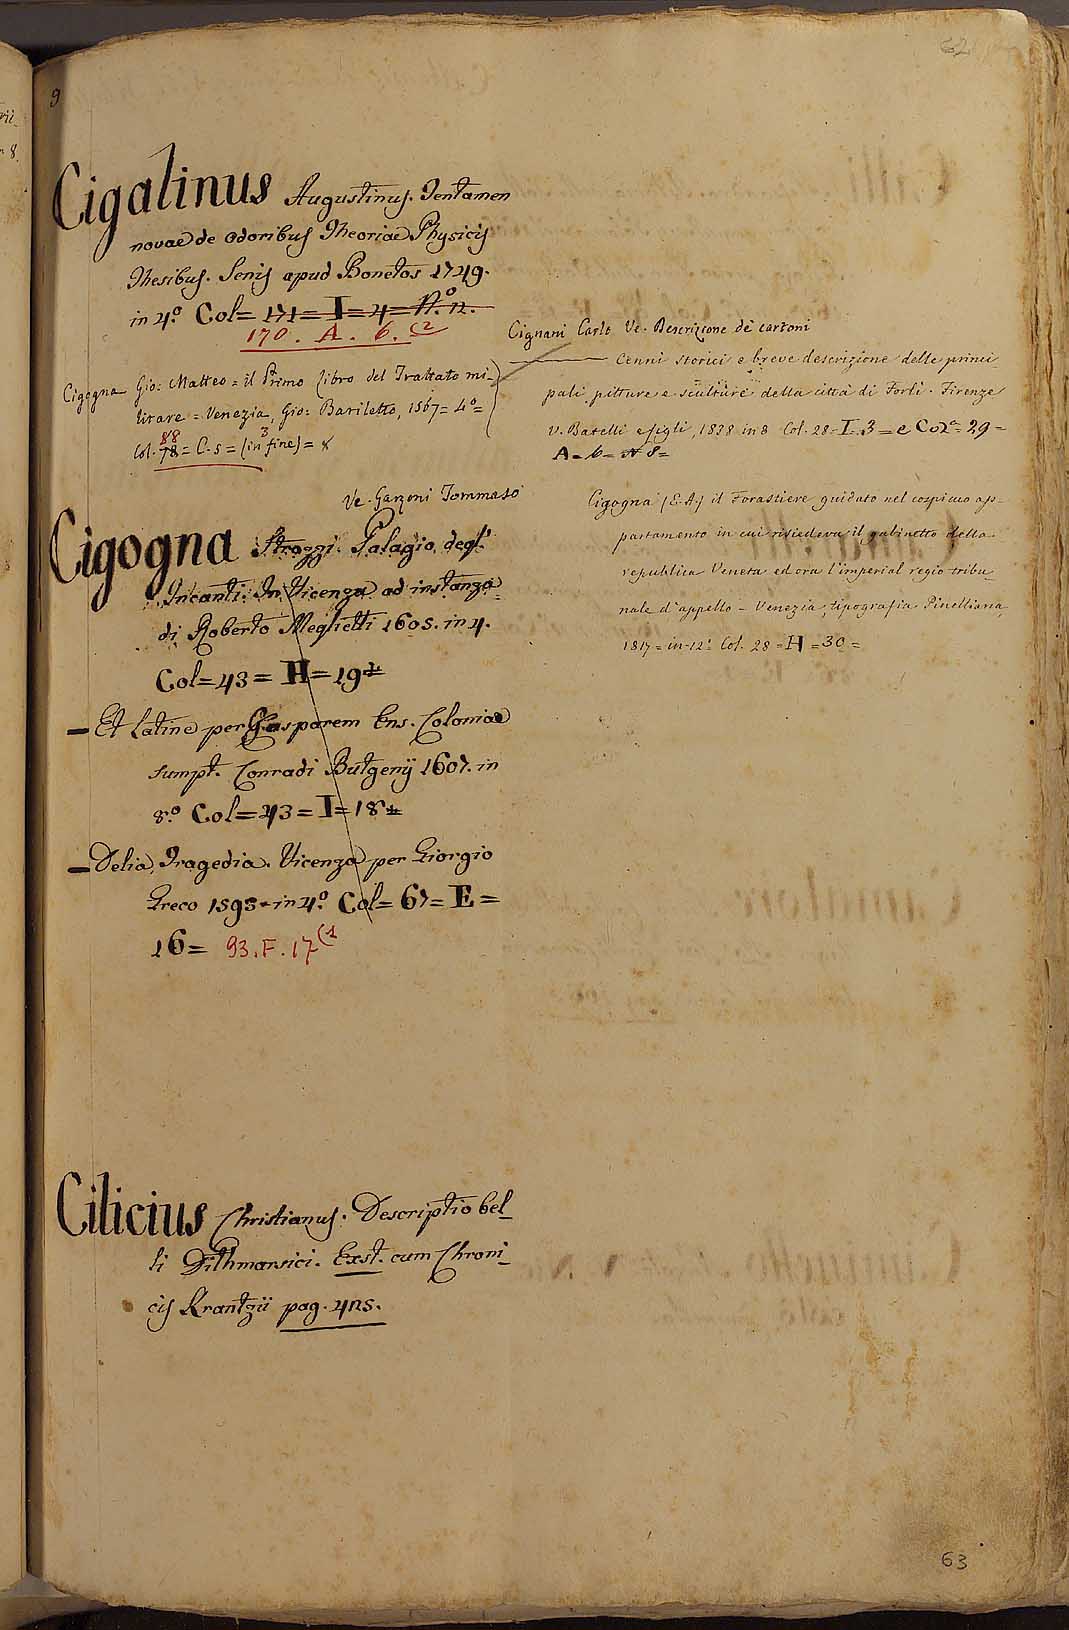 62
9
Cigalinus Augustinus. Tentamen
novae de odoribus Theoriae Physicis
Thesibus. Senis apud Bonetos 1749.
in 4.º Col= 171= I= 4= N.º 12.
170. A. 6. C2
Cigogna Gio: Matteo = il Primo Libro del Trattato mi-
litare = Venezia, Gio: Bariletto, 1567= 4º=
88
Col. 78= C. 5= (in fine)= 8
3
Ve. Garzoni Tommaso
Cigogna Strozzi. Palagio degl'
Incanti. In Vicenza ad instanza
di Roberto Meglietti 1605. in 4.
Col= 43= H= 19
— Et Latine per Gasparem Ens. Coloniae
sumpt. Conradi Butgenij 1607. in
8.º Col= 43= I= 18
— Delia, Tragedia. Vicenza per Giorgio
Greco 1593. in 4.º Col= 67= E=
16= 93. F. 17(1
Cilicius Christianus. Descriptio bel-
li Dithmarsici. Exst. cum Chroni-
cis Krantzii pag. 425.
Cignani Carlo Ve. Descrizione de' cartoni
Cenni storici e breve descrizione delle princi-
pali pitture e sculture della città di Forlì. Firenze
v. Batelli e figli, 1838 in 8 Col. 28= I. 3= e Col= 29=
A= 6= N 8=
Cigogna (E. A.) il Forastiere guidato nel cospicuo ap-
partamento in cui risiedeva il gabinetto della
republica Veneta ed ora l'imperial regio tribu-
nale d'appello - Venezia, tipografia Pinelliana,
1817= in-12º Col. 28= H= 30=
63